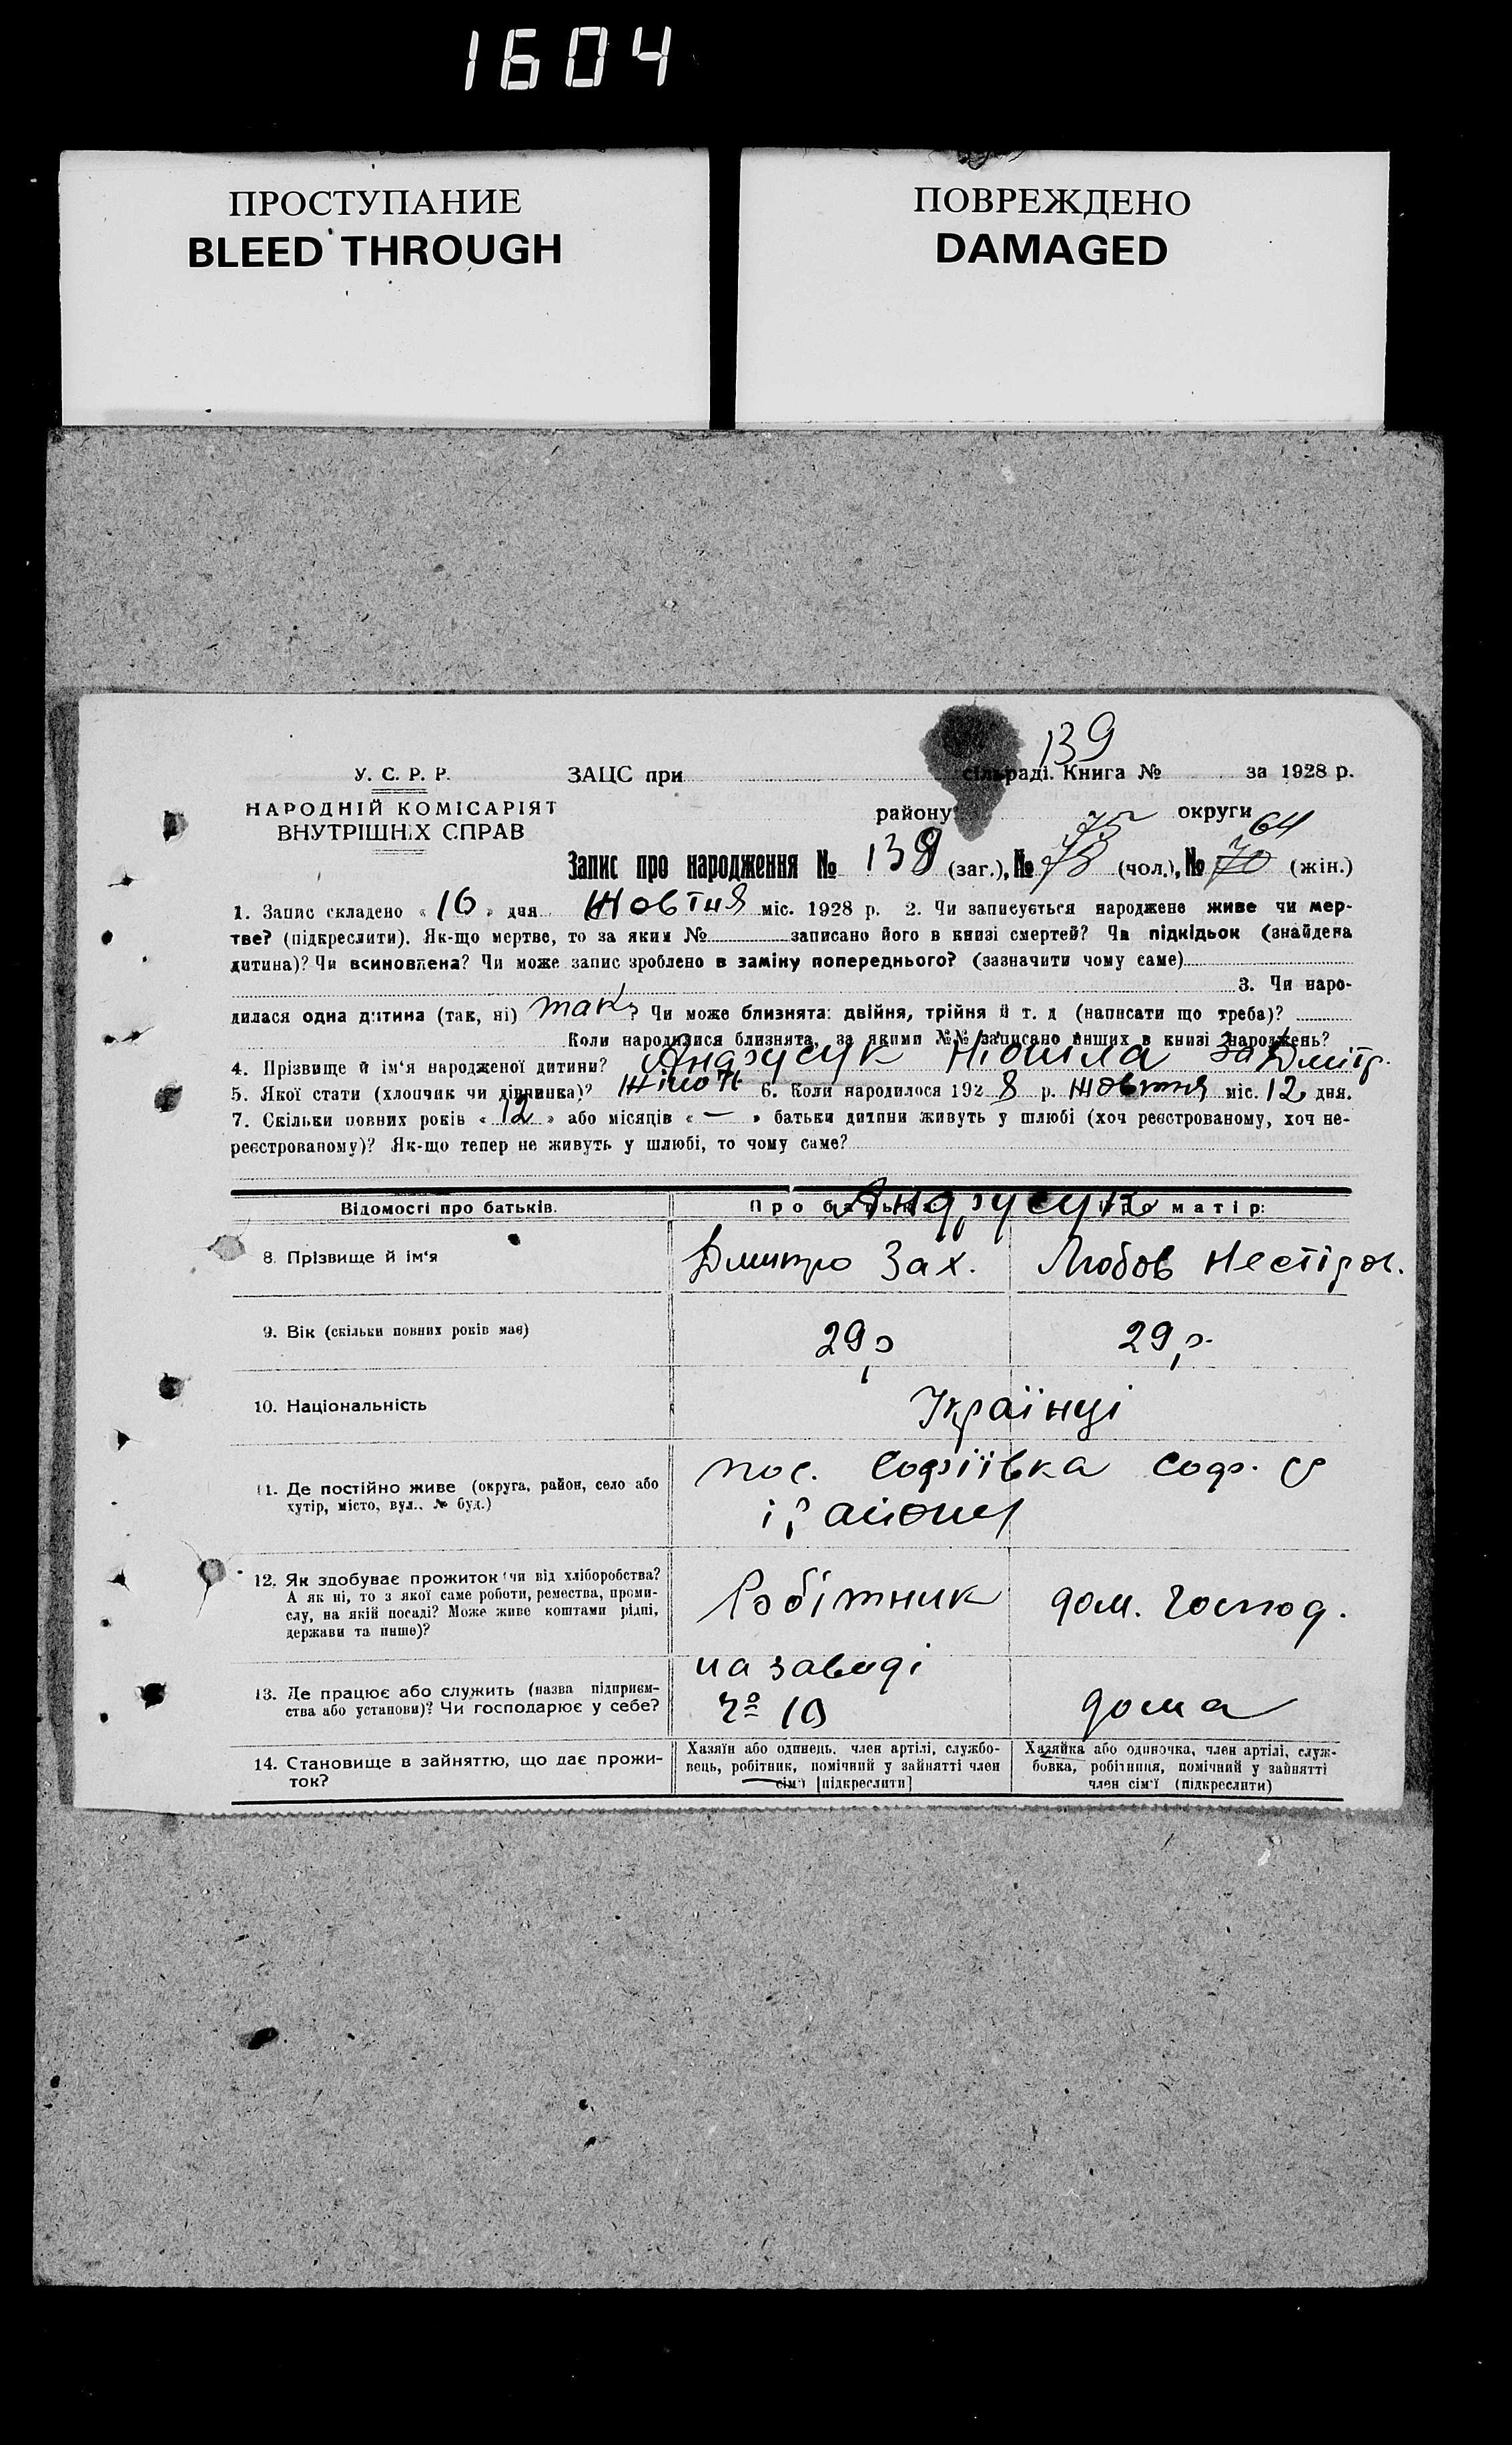 1604
ПРОСТУПАНИЕ
BLEED THROUGH
ПОВРЕЖДЕНО
DAMAGED
139
У. С. Р. Р.
НАРОДНІЙ КОМІСАРІЯТ
ВНУТРІШНІХ СПРАВ
ЗАЦС при сільраді. Книга № за 1928 р.
району округи
75 64
Запис про народження № 138 (заг.), № 73 (чол.), № 70 (жін.)
1. Запис складено « 16 » дня Жовтня міс. 1928 р. 2. Чи записується народжене живе чи мер-
тве? (підкреслити). Як-що мертве, то за яким № записано його в книзі смертей? Чи підкідьок (знайдена
дитина)? Чи всиновлена? Чи може запис зроблено в заміну попереднього? (зазначити чому саме)
3. Чи наро-
дилася одна дитина (так, ні) так? Чи може близнята: двійня, трійня й т. д (написати що треба)?
Коли народилися близнята, за якими №№ записано инших в книзі народжень?
4. Прізвище й ім'я народженої дитини? Андрусук Дмитр.
5. Якої стати (хлопчик чи дівчинка)? Жіноч 6. Коли народилося 192 8 р. Жовтня міс. 12 дня.
7. Скільки повних років « 12 » або місяців « — » батьки дитини живуть у шлюбі (хоч реєстрованому, хоч не-
реєстрованому)? Як-що тепер не живуть у шлюбі, то чому саме?
Відомості про батьків. Про батька: Про матір:
Андрусук
8. Прізвище й ім'я Дмитро Зах. Любов Нестіров.
9. Вік (скільки повних років має) 29 р 29 р.
10. Національність Українці
11. Де постійно живе (округа, район, село або
хутір, місто, вул., № буд.)
пос. Софіївка Соф.
і району
12. Як здобуває прожиток (чи від хліборобства?
А як ні, то з якої саме роботи, ремества, проми-
слу, на якій посаді? Може живе коштами рідні,
держави та инше)?
Робітник дом. господ.
13. Де працює або служить (назва підприєм-
ства або установи)? Чи господарює у себе?
на заводі
10 дома
14. Становище в зайняттю, що дає прожи-
ток?
Хазяїн або одинець, член артілі, службо-
вець, робітник, помічний у зайнятті член
сім'ї [підкреслити]
Хазяйка або одиночка, член артілі, служ-
бовка, робітниця, помічний у зайнятті
член сім'ї (підкреслити)